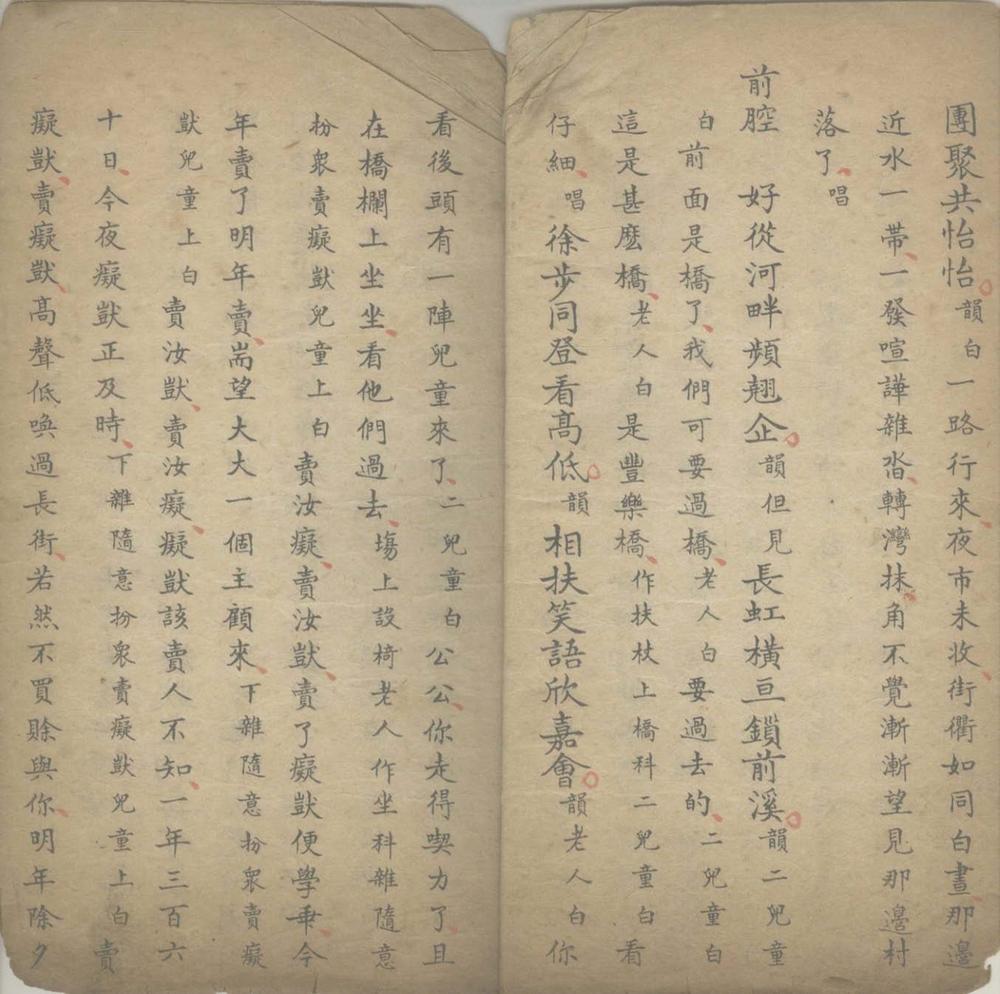 團聚共怡怡。韻白一路行來、夜市未收、街衢如同白晝、那邊
近水一帶、一發喧譁雜沓、轉灣抹角、不覺漸漸望見那邊村
落了、唱
前腔　好從河畔頻翹企。韻但見長虹橫亘鎖前溪。韻二兒童
白前面是橋了、我們可要過橋、老人白要過去的、二兒童白
這是甚麽橋、老人白是豐樂橋、作扶杖上橋科二兒童白看
仔細、唱徐步同登看高低。韻相扶笑語欣嘉會。韻老人白你
看後頭有一陣兒童來了、二兒童白公公、你走得喫力了、且
在橋欄上坐坐、看他們過去、塲上設椅老人作坐科雜隨意
扮衆賣癡獃兒童上白賣汝癡、賣汝獃、賣了癡獃便學乖、今
年賣了明年賣、耑望大大一個主顧來、下雜隨意扮衆賣癡
獃兒童上白賣汝獃、賣汝癡、癡獃該賣人不知、一年三百六
十日、今夜癡獃正及時、下雜隨意扮衆賣癡獃兒童上白賣
癡獃、賣癡獃、高聲低喚過長街、若然不買賒與你、明年除夕